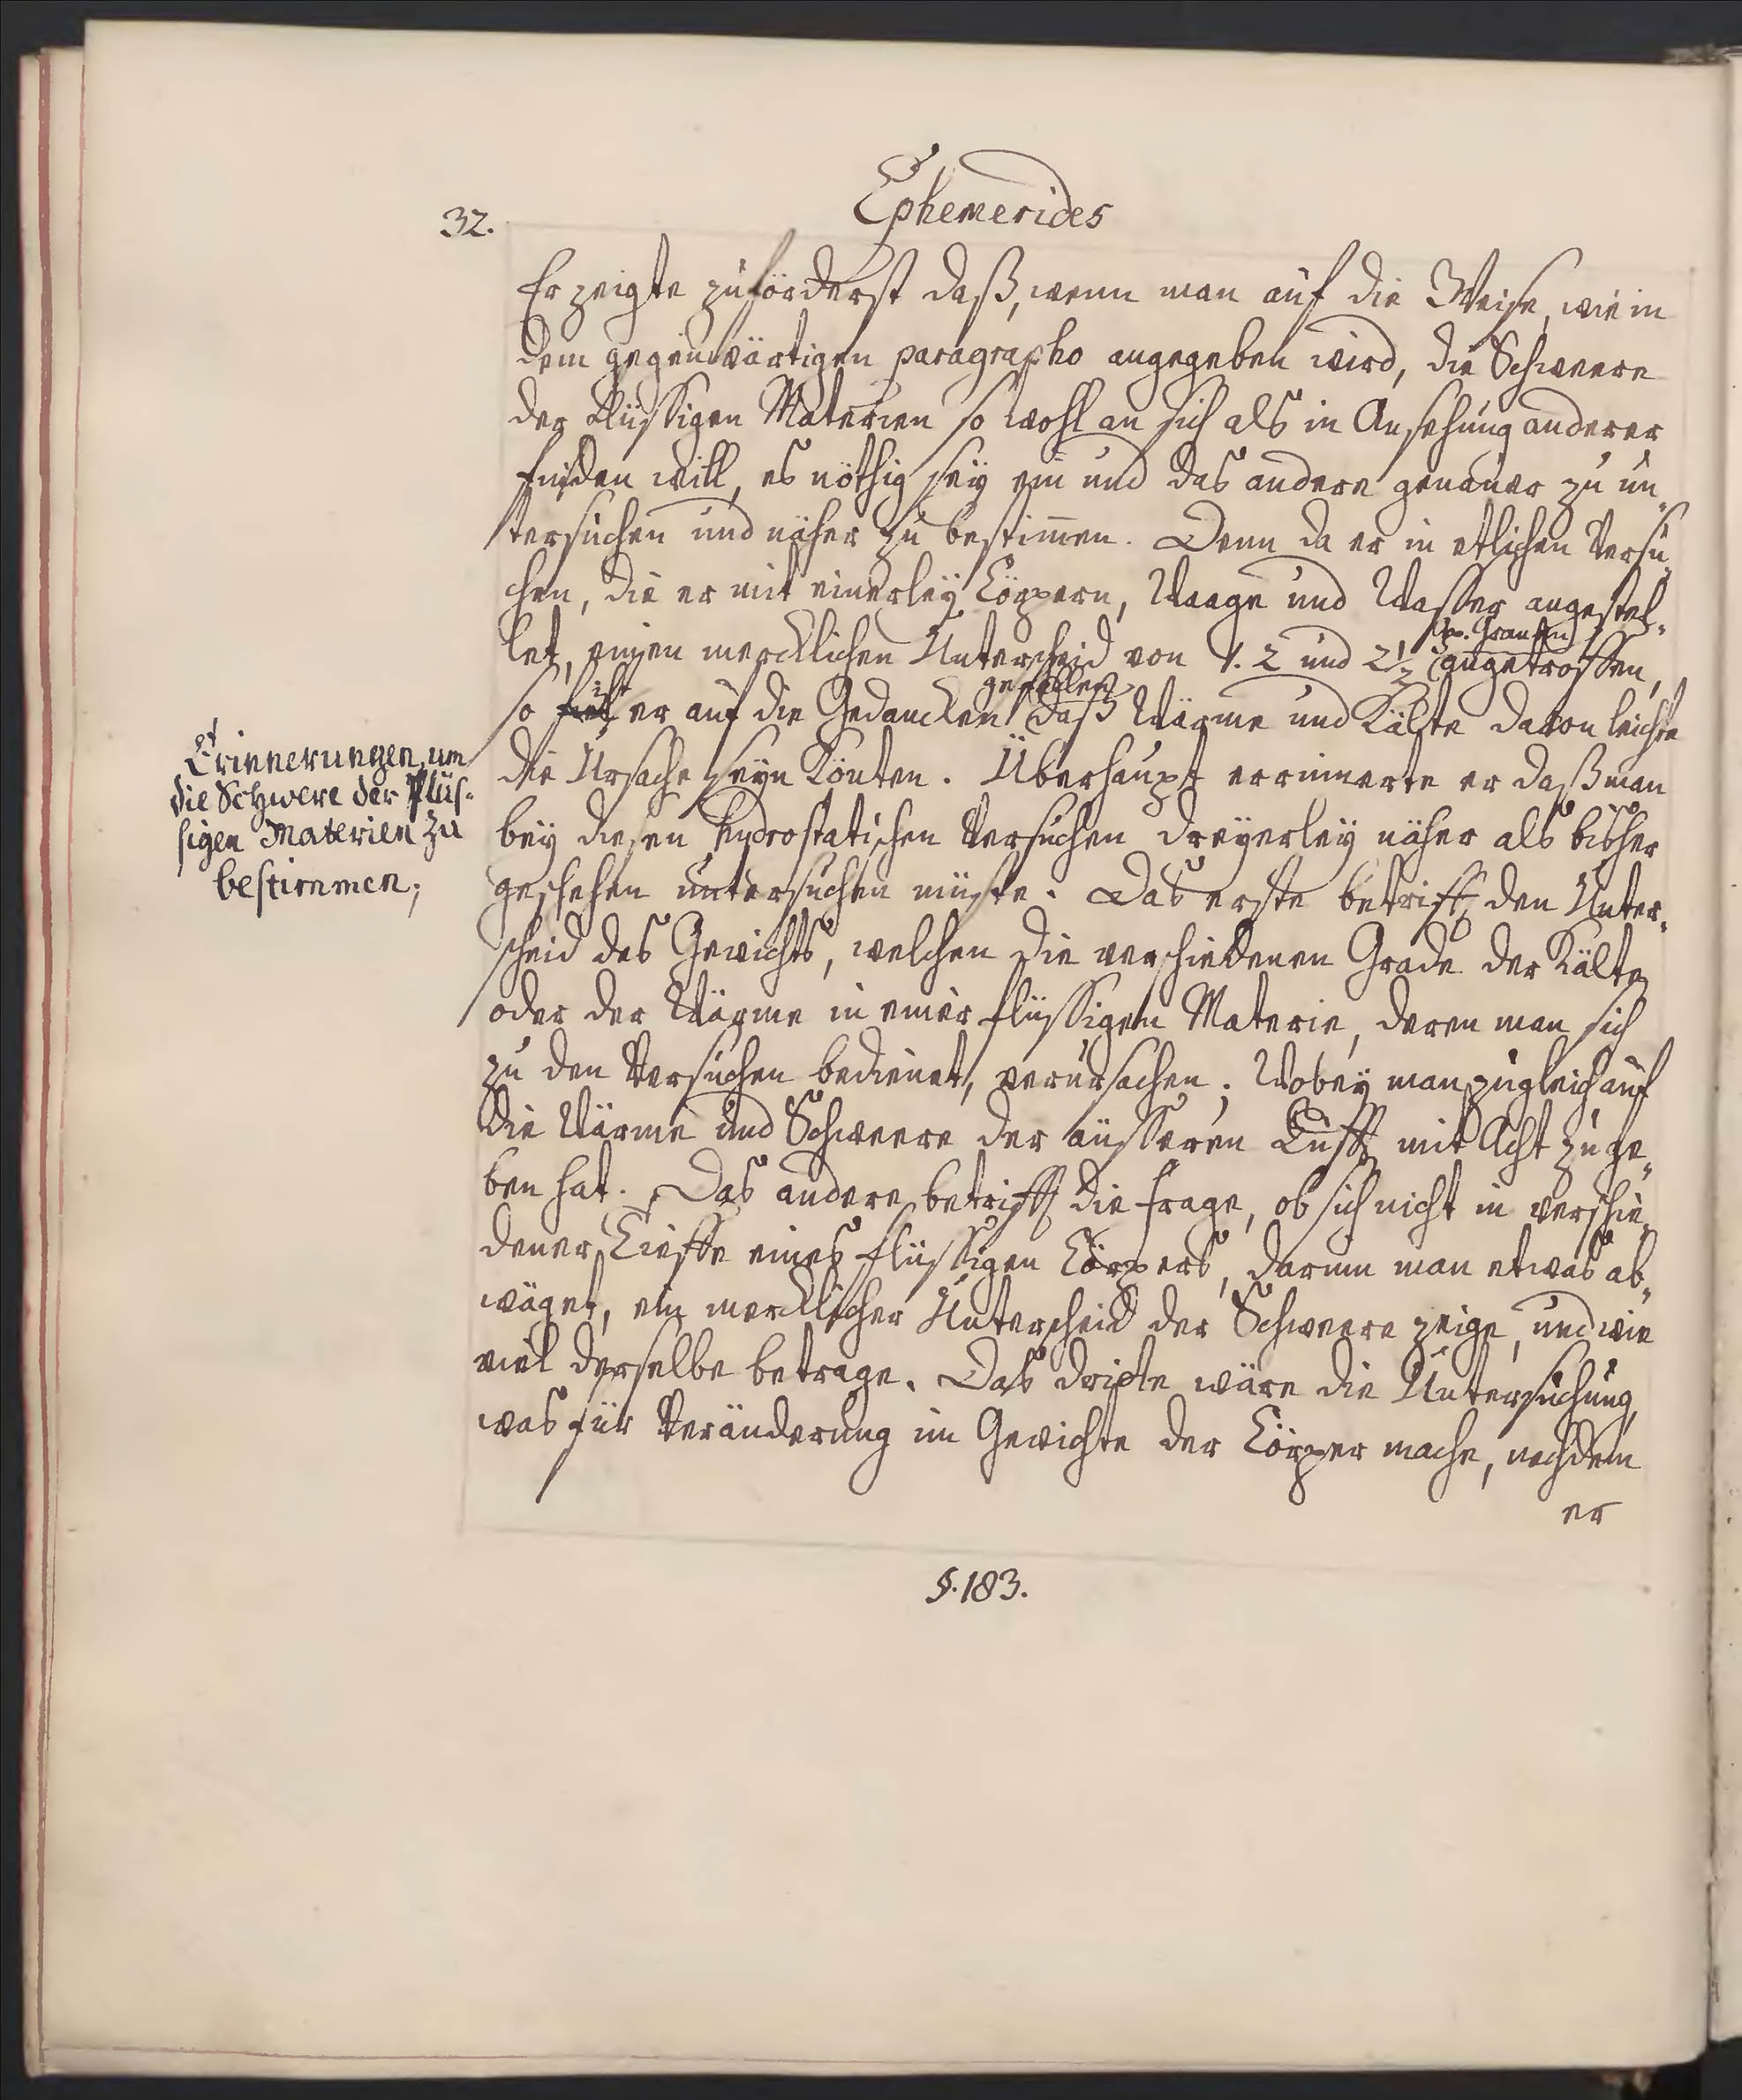 32.
Ephemerides
Er zeigte zuförderst daß, wenn man auf die Weise, wie in
dem gegenwärtigen paragrapho angegeben wird, die Schweere
der flüssigen Materien so wohl an sich als in Ansehung anderer
finden will, es nöthig seÿ ein und das andere genauer zu un-
tersuchen und näher zu bestim̄en. Denn da er in etlichen Versu-
chen, die er mit einerleÿ Cörpern, Waage und Wasser angestel-
let, einen mercklichen Unterscheid von 1. 2 und 2½ angetroffen,
so fiel ist er auf die Gedancken gefallen daß Wärme und Kälte davon leichte
die Ursache seyn könten. Überhaupt errinnerte er daß man
beÿ diesen hydrostatischen Versuchen dreÿerleÿ näher als bißher
geschehen untersuchen müste. Das erste betrifft den Unter-
scheid des Gewichts, welchen die verschiedenen Grade der Kälte
oder der Wärme in einer flüssigen Materie, deren man sich
zu den Versuchen bedienet, verursachen; Wobeÿ man zugleich auf
die Wärme und Schweere der äusseren Lufft mit Acht zu ge-
ben hat. Das andere betrifft die Frage, ob sich nicht in verschie-
dener Tieffe eines flüssigen Cörpers, darinn man etwas ab-
wäget, ein mercklicher Unterscheid der Schweere zeige, und wie
viel derselbe betrage. Das dritte wäre die Untersuchung,
was für Veränderung im Gewichte der Cörper mache, nachdem
er
Erinnerungen, um
die Schwere der flüs-
sigen Materien zu
bestimmen;
§. 183.